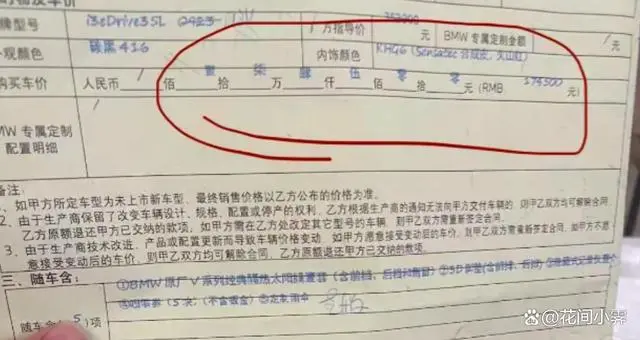 牌型号 i3eDrive35L 0423- 厂方指导价 353900 元 BMW 专属定制金额
观颜色 碳黑416 内饰颜色 KHG6 (Sensatec
购买车价 人民币 / 佰 壹 拾 柒 万 肆 仟 伍 佰 零 拾 零 元 (RMB 174500 元)
MW 专属定制
配置明细
备注:
1、如甲方所定车型为未上市新车型，最终销售价格以乙方公布的价格为准。
2、由于生产商保留了改变车辆设计、规格、配置或停产的权利，乙方根据生产商的通知无法向甲方交付车辆的，则甲乙双方均可解除合同，
乙方原额退还甲方已交纳的款项。如甲方需在乙方处改定其它型号的车辆，则甲乙双方需重新签定合同。
3、由于生产商技术改进、产品或配置更新而导致车辆价格变动，如甲方愿意接受变动后的车价，则甲乙双方需重新签定合同，如甲方不愿
意接受变动后的车价，则甲乙双方均可解除合同，乙方原额退还甲方已交纳的款项。
三、随车含:
①BMW原厂V系列经典隔热太阳膜套装(含前挡、后挡和侧窗)
随车含(5)项 (5次,(不含钣金)
知@花间小霁